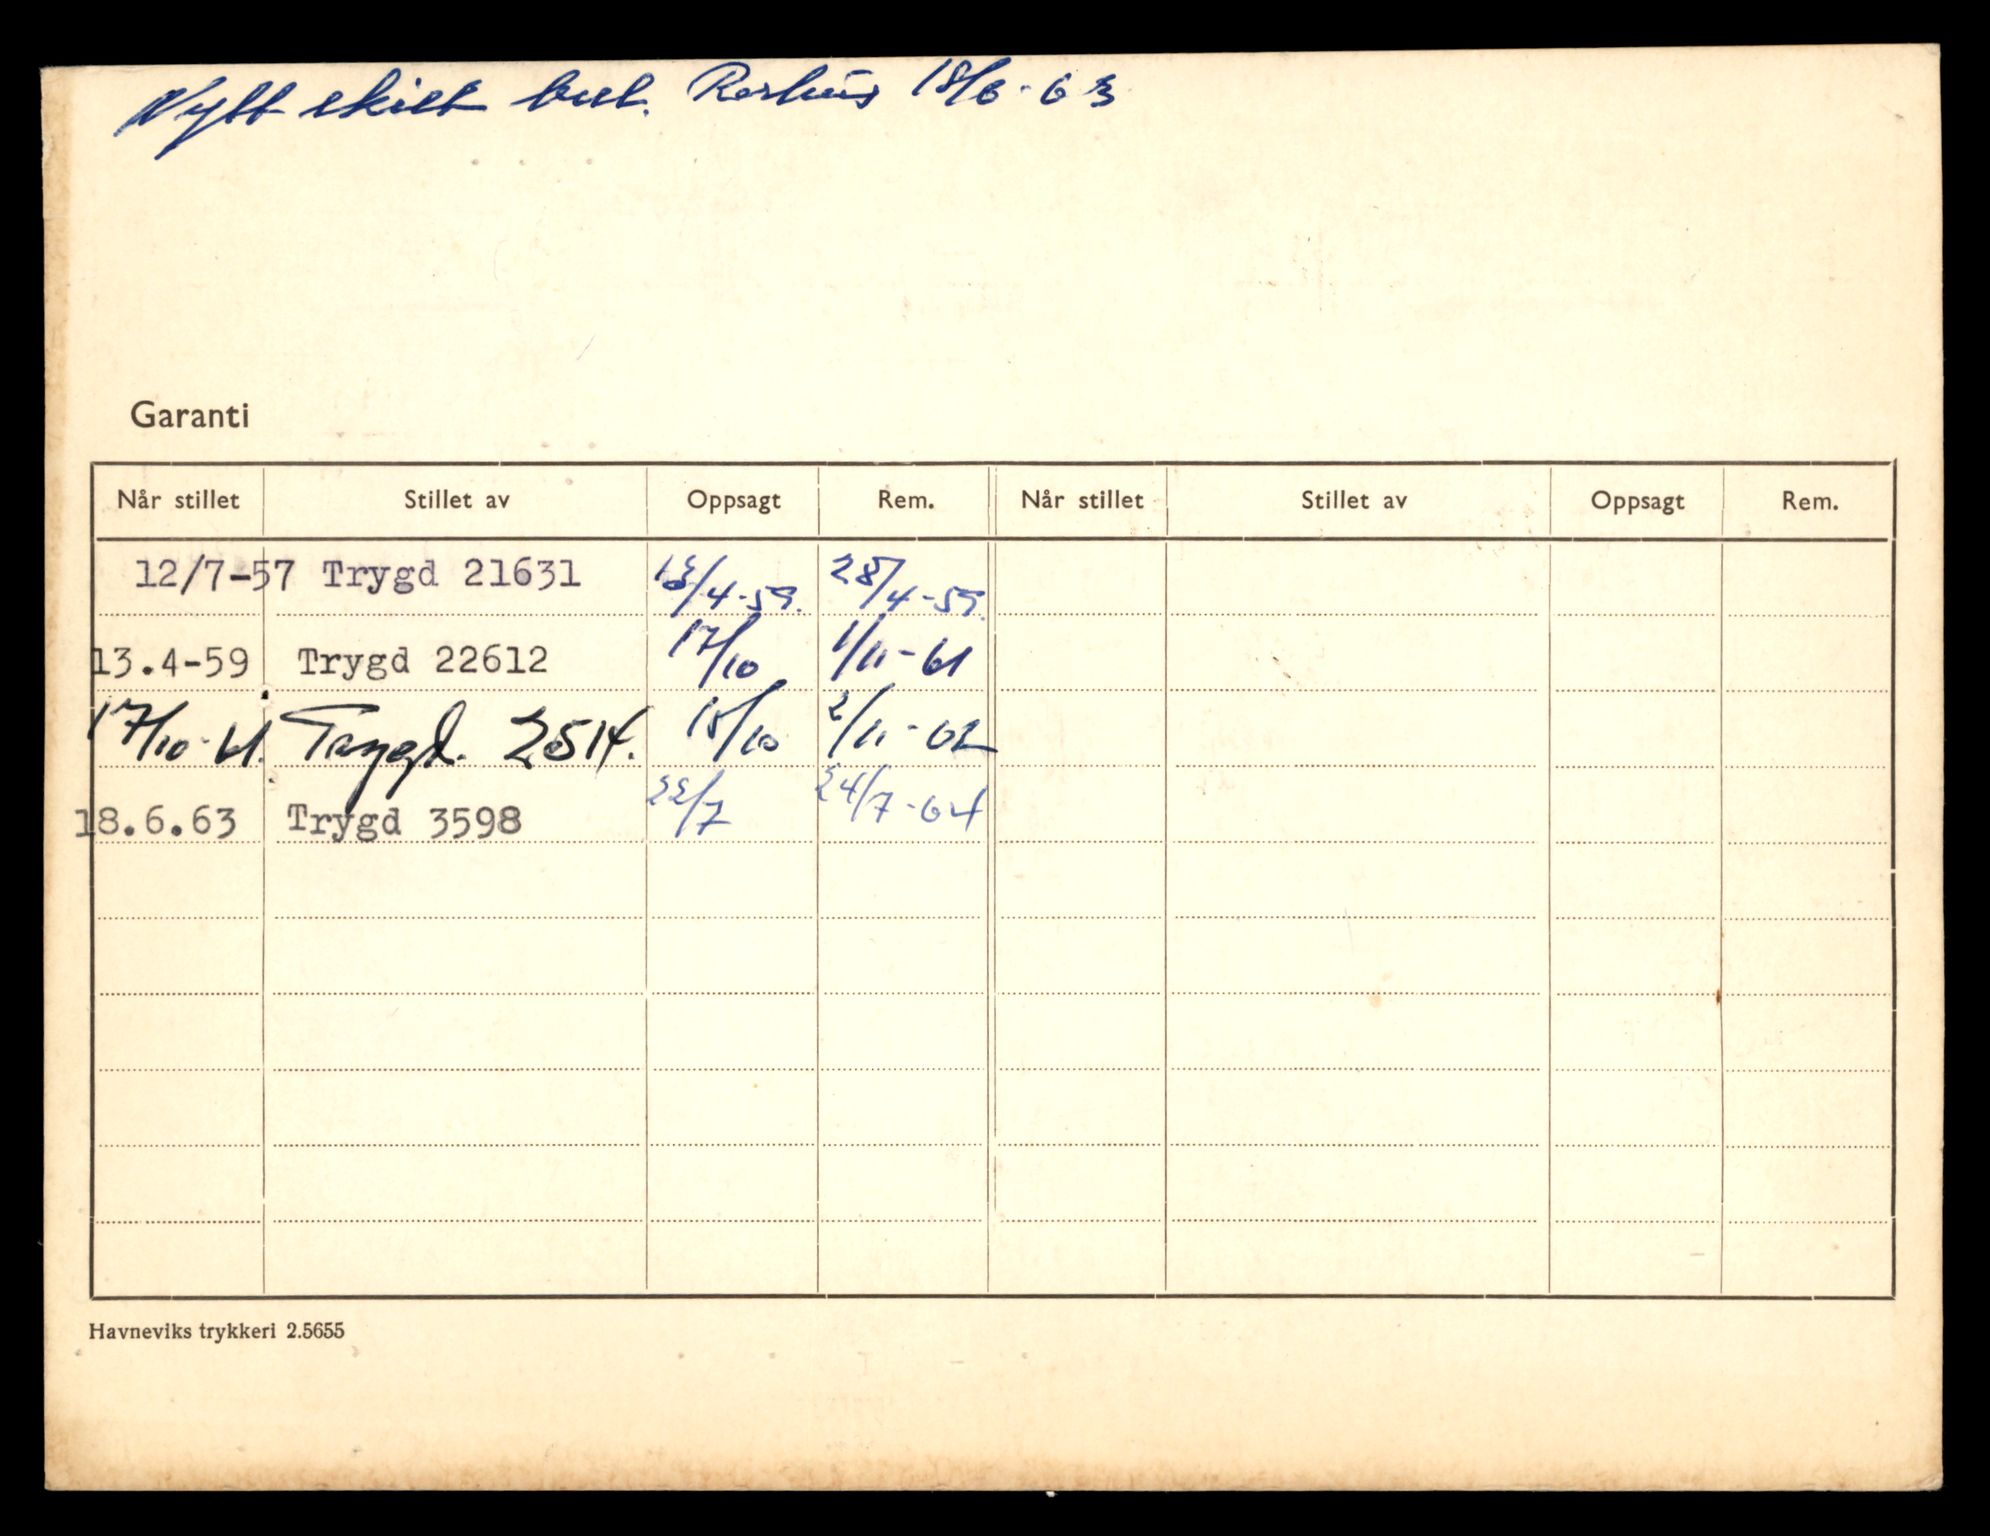 Nytt skilt best. Rashus 18/6-63
Garanti
Når stillet Stillet av Oppsagt Rem. Når stillet Stillet av Oppsagt Rem.
12/7-57 Trygd 21631 /4-59. 28/4-59.
13.4-59 Trygd 22612 17/10 1/11-61
17/10-61. Trygd. 2514. 15/10 2/11-62
18.6.63 Trygd 3598 22/7 24/7-64
Havneviks trykkeri 2.5655